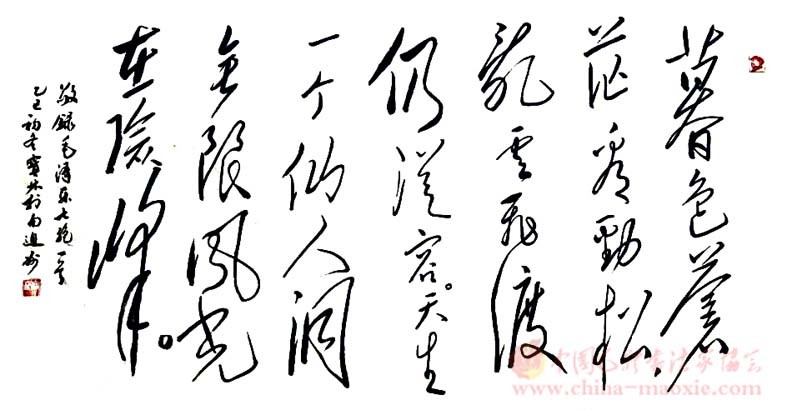 暮色蒼
茫看勁松,
亂雲飛渡
仍從容。天生
一个仙人洞
無限風光
在險峰。
敬錄毛澤東七絕一首
初冬寶林於
中国毛体书法家协会
www.china-maoxie.com